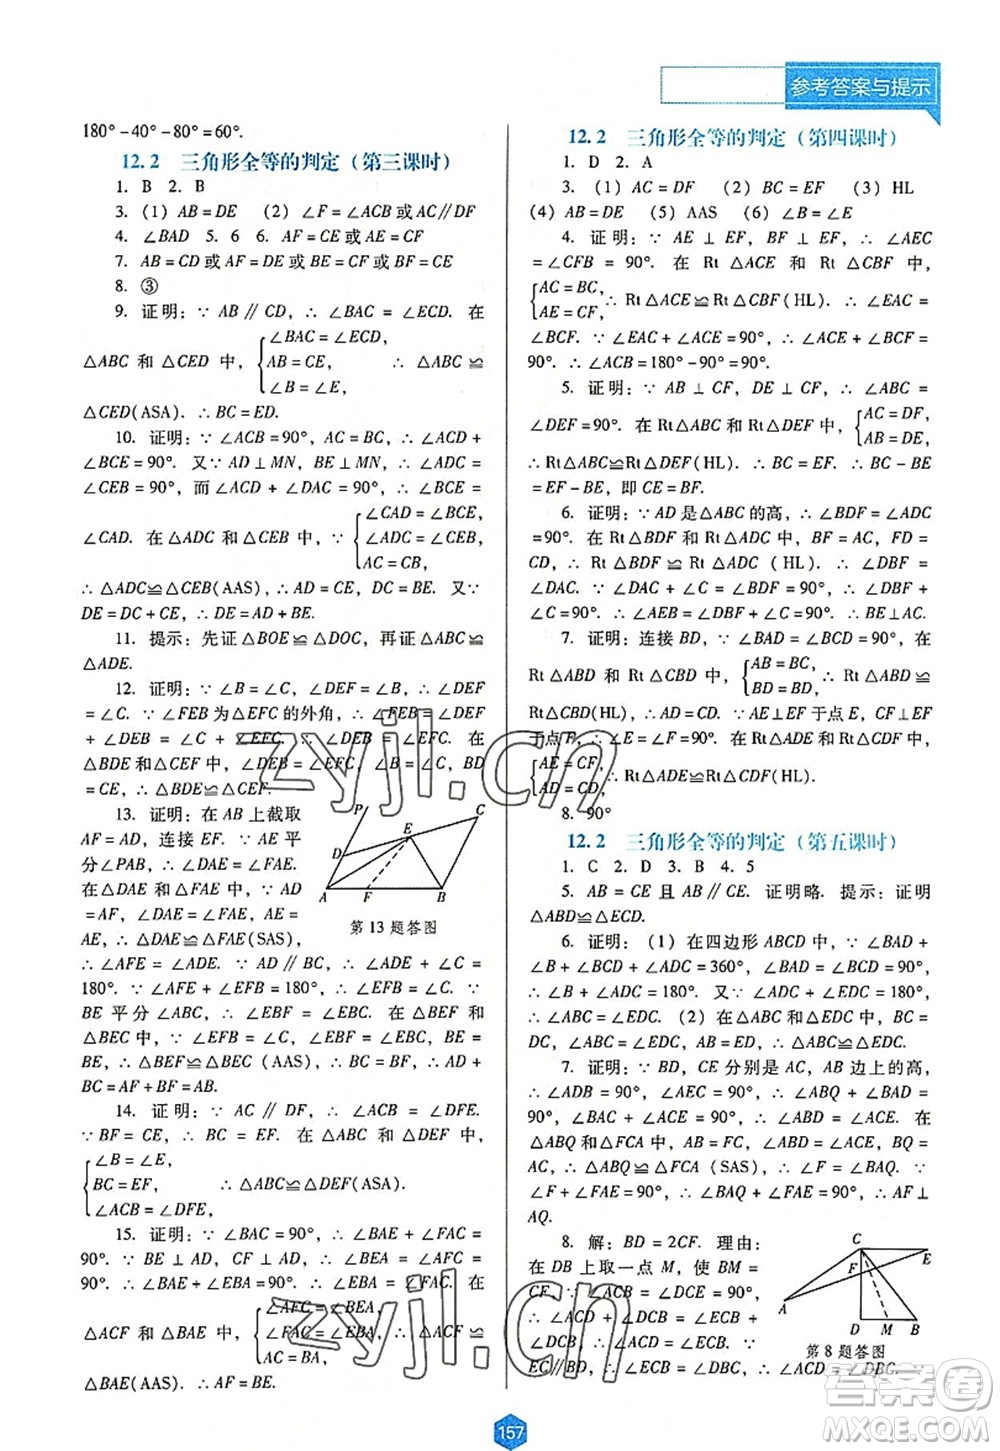 参考答案与提示
180°-40°-80°=60°.
12.2 三角形全等的判定（第三课时）
1. B 2. B
3. (1) AB=DE (2) ∠F=∠ACB或AC∥DF
4. ∠BAD 5. 6 6. AF=CE或AE=CF
7. AB=CD或AF=DE或BE=CF或BF=CE
8. ③
9. 证明：∵ AB∥CD, ∴ ∠BAC=∠ECD. 在
△ABC 和 △CED 中, {∠BAC=∠ECD, AB=CE, ∠B=∠E, ∴ △ABC≌
△CED(ASA). ∴ BC=ED.
10. 证明：∵ ∠ACB=90°, AC=BC, ∴ ∠ACD+
∠BCE=90°. 又∵ AD⊥MN, BE⊥MN, ∴ ∠ADC=
∠CEB=90°, 而∠ACD+∠DAC=90°, ∴ ∠BCE=
∠CAD. 在△ADC 和△CEB中, {∠CAD=∠BCE, ∠ADC=∠CEB, AC=CB,
∴ △ADC≌△CEB(AAS), ∴ AD=CE, DC=BE. 又∵
DE=DC+CE, ∴ DE=AD+BE.
11. 提示：先证△BOE≌△DOC, 再证△ABC≌
△ADE.
12. 证明：∵ ∠B=∠C, ∠DEF=∠B, ∴ ∠DEF
=∠C. ∵ ∠FEB为△EFC的外角, ∴ ∠FEB=∠DEB
+∠DEF=∠C+∠EFC, ∴ ∠DEB=∠EFC. 在
△BDE和△CEF中, ∠DEB=∠EFC, ∠B=∠C, BD
=CE, ∴ △BDE≌△CEF.
13. 证明：在 AB 上截取
AF=AD, 连接 EF. ∵ AE 平
分∠PAB, ∴ ∠DAE=∠FAE.
在△DAE 和△FAE 中, ∵ AD
=AF, ∠DAE=∠FAE, AE=
AE, ∴ △DAE≌△FAE(SAS),
P
C
E
D
A
F
B
第13题答图
∴ ∠AFE=∠ADE. ∵ AD∥BC, ∴ ∠ADE+∠C=
180°. ∵ ∠AFE+∠EFB=180°, ∴ ∠EFB=∠C. ∵
BE 平分∠ABC, ∴ ∠EBF=∠EBC. 在△BEF 和
△BEC 中, ∵ ∠EFB=∠C, ∠EBF=∠EBC, BE=
BE, ∴ △BEF≌△BEC (AAS), ∴ BC=BF, ∴ AD+
BC=AF+BF=AB.
14. 证明：∵ AC∥DF, ∴ ∠ACB=∠DFE.
∵ BF=CE, ∴ BC=EF. 在△ABC 和△DEF 中,
{∠B=∠E, BC=EF, ∠ACB=∠DFE, ∴ △ABC≌△DEF(ASA).
15. 证明：∵ ∠BAC=90°, ∴ ∠BAE+∠FAC=
90°. ∵ BE⊥AD, CF⊥AD, ∴ ∠BEA=∠AFC=
90°. ∴ ∠BAE+∠EBA=90°. ∴ ∠EBA=∠FAC. 在
△ACF 和△BAE 中, {∠AFC=∠BEA, ∠FAC=∠EBA, AC=BA, ∴ △ACF≌
△BAE(AAS). ∴ AF=BE.
12.2 三角形全等的判定（第四课时）
1. D 2. A
3. (1) AC=DF (2) BC=EF (3) HL
(4) AB=DE (5) AAS (6) ∠B=∠E
4. 证明：∵ AE⊥EF, BF⊥EF, ∴ ∠AEC
=∠CFB=90°. 在 Rt△ACE 和 Rt△CBF 中,
{AC=BC, AE=CF, ∴ Rt△ACE≌Rt△CBF(HL). ∴ ∠EAC=
∠BCF. ∵ ∠EAC+∠ACE=90°, ∴ ∠ACE+∠BCF=
90°. ∴ ∠ACB=180°-90°=90°.
5. 证明：∵ AB⊥CF, DE⊥CF, ∴ ∠ABC=
∠DEF=90°. 在Rt△ABC和Rt△DEF中, {AC=DF, AB=DE,
∴ Rt△ABC≌Rt△DEF(HL). ∴ BC=EF. ∴ BC-BE
=EF-BE, 即CE=BF.
6. 证明：∵ AD是△ABC的高, ∴ ∠BDF=∠ADC
=90°. ∴ 在Rt△BDF 和Rt△ADC 中, BF=AC, FD=
CD, ∴ Rt△BDF≌Rt△ADC (HL). ∴ ∠DBF=
∠DAC. ∵ ∠DAC+∠C=90°, ∴ ∠C+∠DBF=
90°. ∴ ∠AEB=∠DBF+∠C=90°. ∴ BE⊥AC.
7. 证明：连接 BD, ∵ ∠BAD=∠BCD=90°, 在
Rt△ABD 和 Rt△CBD 中, {AB=BC, BD=BD, ∴ Rt△ABD≌
Rt△CBD(HL). ∴ AD=CD. ∵ AE⊥EF于点E, CF⊥EF
于点F, ∴ ∠E=∠F=90°. 在Rt△ADE和Rt△CDF中,
{AE=CF, AD=CD, ∴ Rt△ADE≌Rt△CDF(HL).
8. 90°
12.2 三角形全等的判定（第五课时）
1. C 2. D 3. B 4. 5
5. AB=CE 且 AB∥CE. 证明略. 提示：证明
△ABD≌△ECD.
6. 证明：(1) 在四边形 ABCD 中, ∵ ∠BAD+
∠B+∠BCD+∠ADC=360°, ∠BAD=∠BCD=90°,
∴ ∠B+∠ADC=180°. 又∵ ∠ADC+∠EDC=180°,
∴ ∠ABC=∠EDC. (2) 在△ABC和△EDC中, ∵ AB=
DE, ∠ABC=∠EDC, BC=DC, ∴ △ABC≌△EDC.
7. 证明：∵ BD, CE 分别是 AC, AB 边上的高,
∴ ∠ADB=90°, ∠AEC=90°, ∴ ∠ABQ+∠BAC=
90°, ∠BAC+∠ACE=90°, ∴ ∠ABD=∠ACE. 在
△ABQ 和△FCA 中, AB=FC, ∠ABD=∠ACE, BQ=
AC, ∴ △ABQ≌△FCA (SAS), ∴ ∠F=∠BAQ. ∵
∠F+∠FAE=90°, ∴ ∠BAQ+∠FAE=90°, ∴ AF⊥
AQ.
8. 解：BD=2CF. 理由：
在 DB 上取一点 M, 使 BM=
∴ ∠ACD+∠DCB=∠ECB+
∠DCB, ∴ ∠ACB=∠ECD. ∵
EC∥BD, ∴ ∠ECB=∠DBC, ∴ ∠ACD=∠DBC. ∵
C
F
E
A
D
M
B
第8题答图
157
zyjl.cn
zyjl.cn
答案圈
MXQE.COM